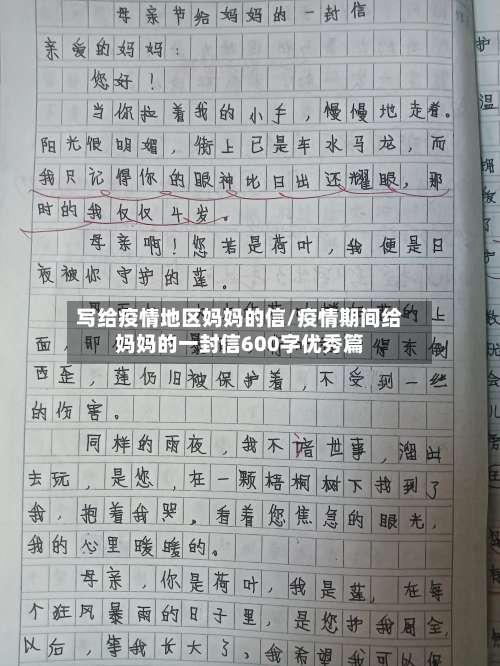 母亲节给妈妈的一封信
亲爱的妈妈：
您好！
当你拉着我的小手，慢慢地走着。
阳光很明媚，街上已是车水马龙，而
我只记得你的眼神比日出还耀眼，那
时的我仅仅4岁。
母亲啊！您若是荷叶，我便是日
夜被你守护的莲。
写给疫情地区妈妈的信/疫情期间给
妈妈的一封信600字优秀篇
的上
面，那
得东倒
西歪，莲仍旧被保护着，不受到一丝
的伤害。
同样的雨夜，我不谙世事，溜出
去玩，是您，在一颗梧桐树下找到了
我，抱着我哭。看着您焦急的眼光，
我的心里暖暖的。
母亲，你是荷叶，我是莲，在每
个狂风暴雨的日子里，是您护我周全，
以后，等我长大了，我希望我可以保